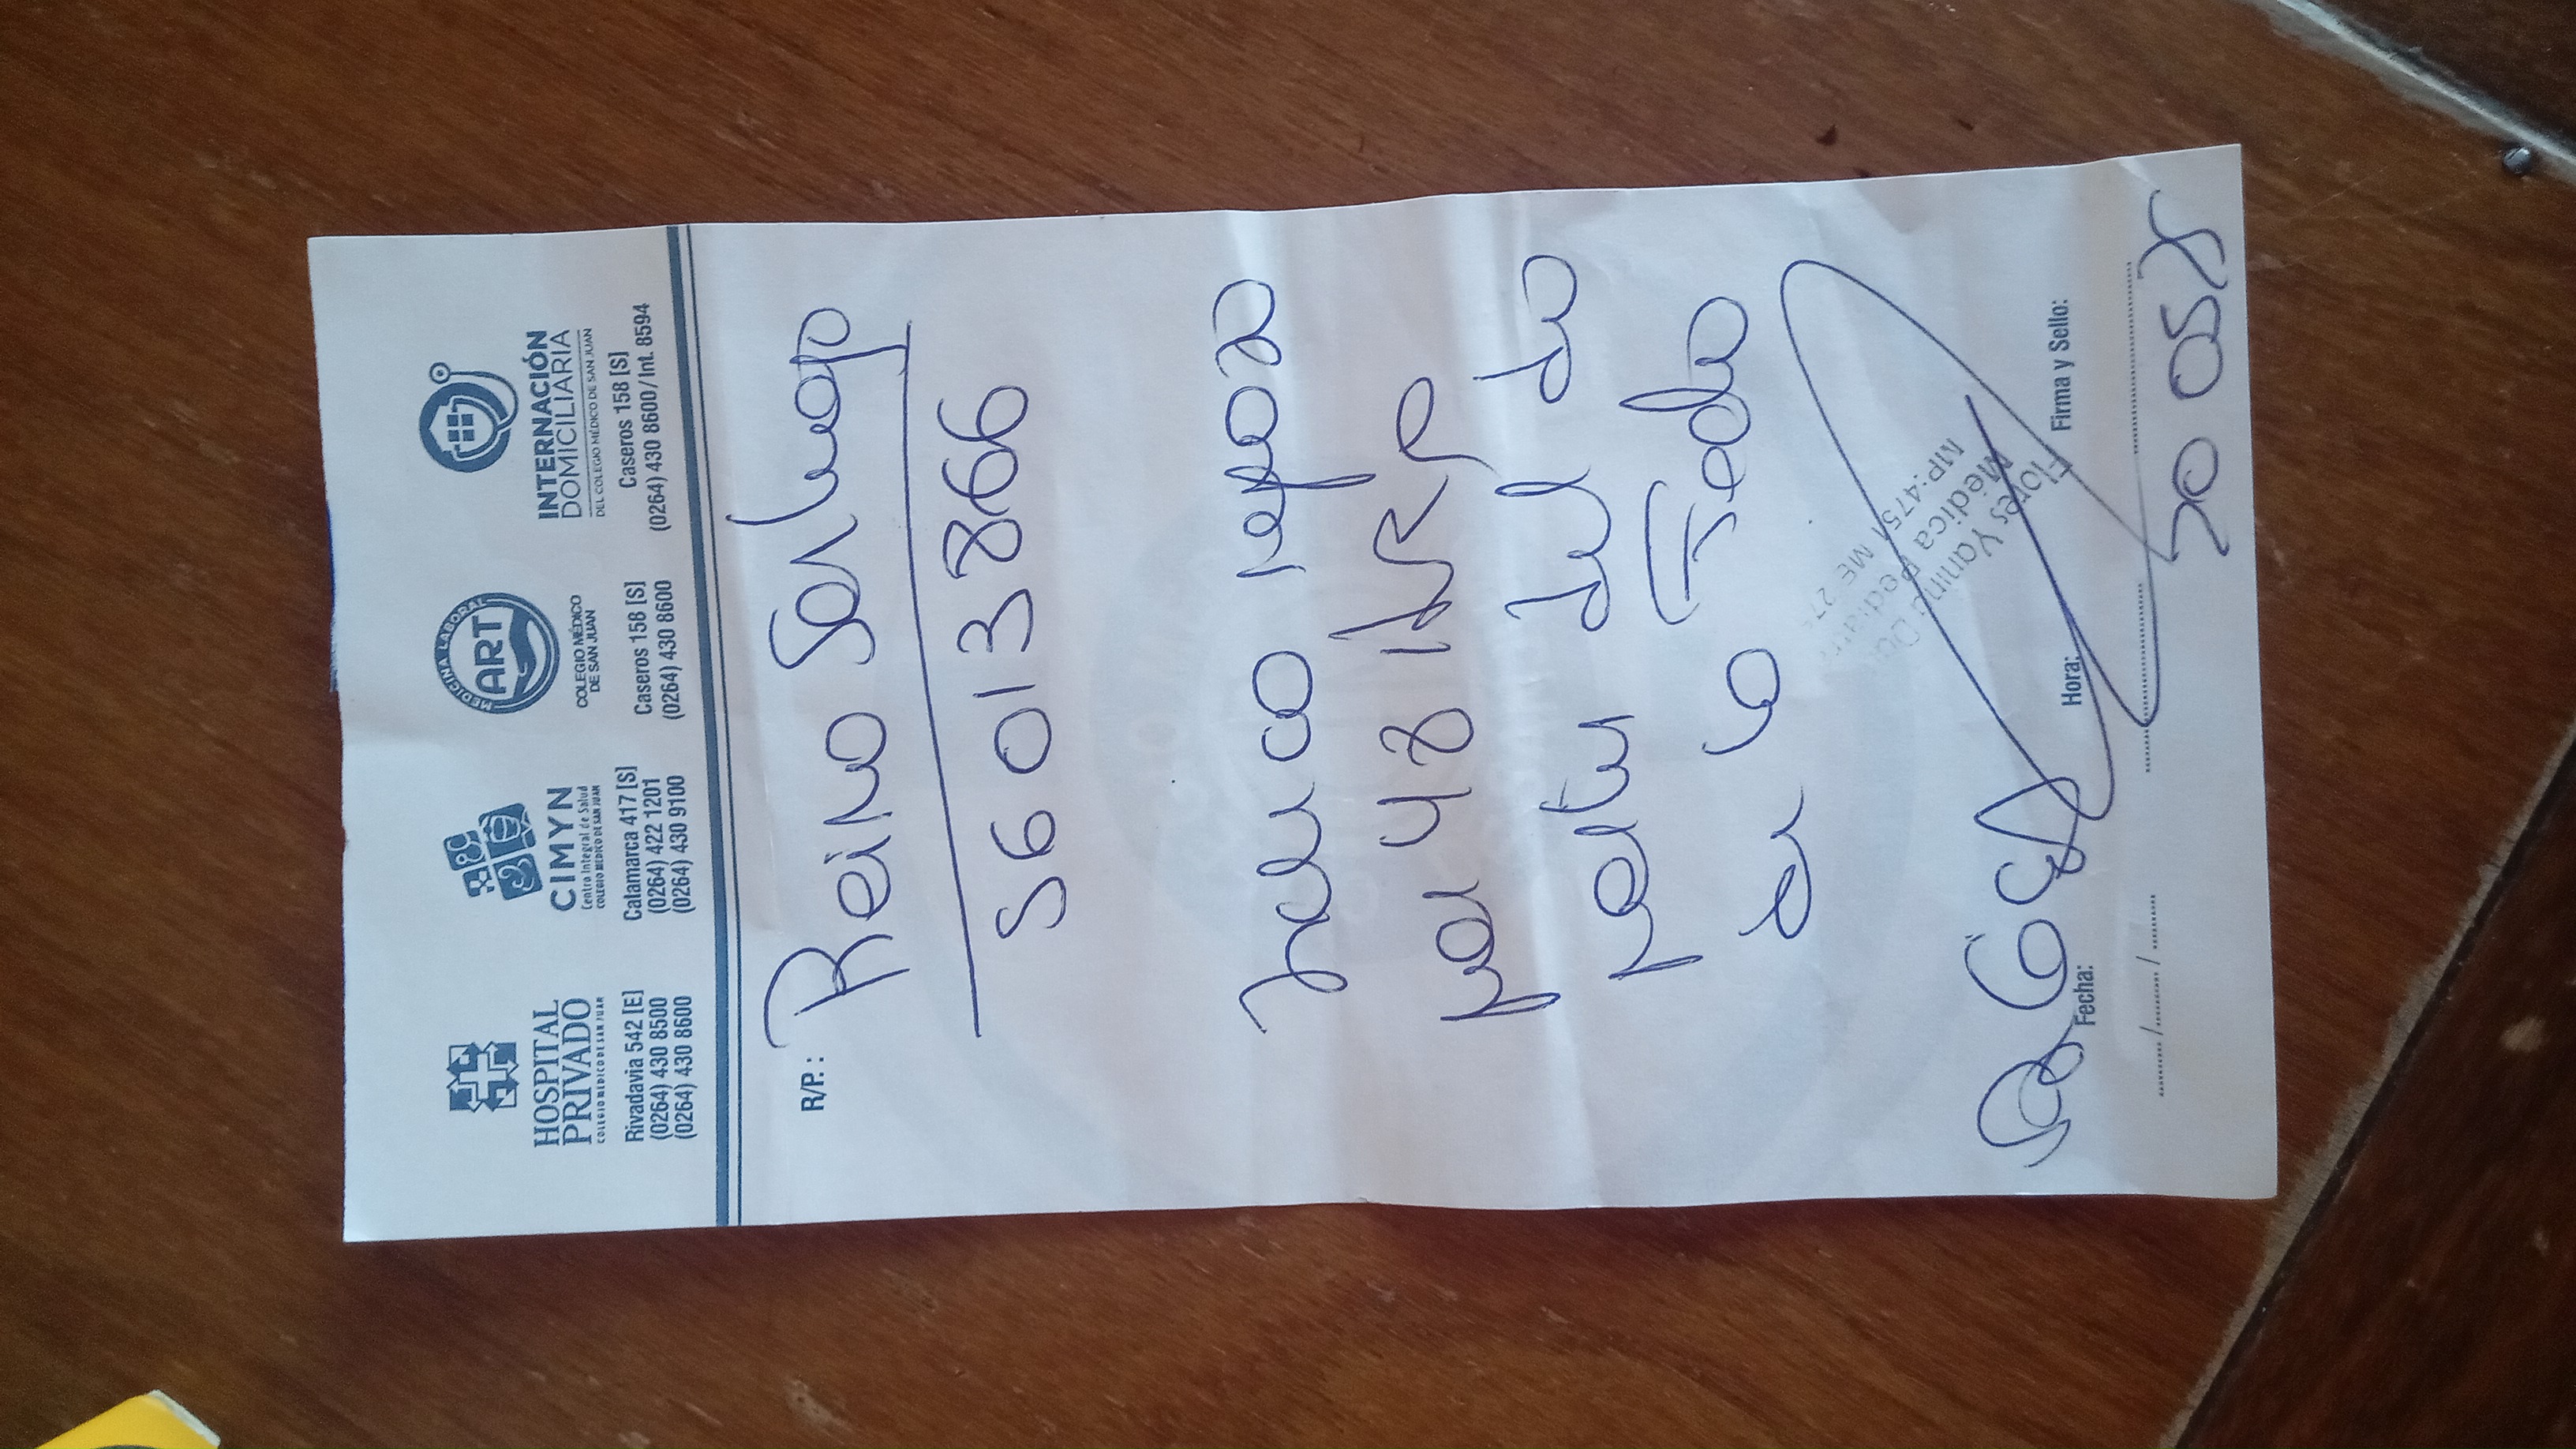 HOSPITAL
PRIVADO
COLEGIO MEDICO DE SAN JUAN
Rivadavia 542 [E]
(0264) 430 8500
(0264) 430 8600
CIMYN
Centro Integral de Salud
COLEGIO MEDICO DE SAN JUAN
Catamarca 417 [S]
(0264) 422 1201
(0264) 430 9100
MEDICINA LABORAL
ART
COLEGIO MÉDICO
DE SAN JUAN
Caseros 158 [S]
(0264) 430 8600
INTERNACIÓN
DOMICILIARIA
DEL COLEGIO MÉDICO DE SAN JUAN
Caseros 158 [S]
(0264) 430 8600/Int. 8594
R/P.: Reino Santiago
56013866
reposo
por 48 hs
partir del do
en la Fecha
Flores Yanina
Médica Pediatra
MP:4751 ME 27
Fecha:
Hora:
Firma y Sello: